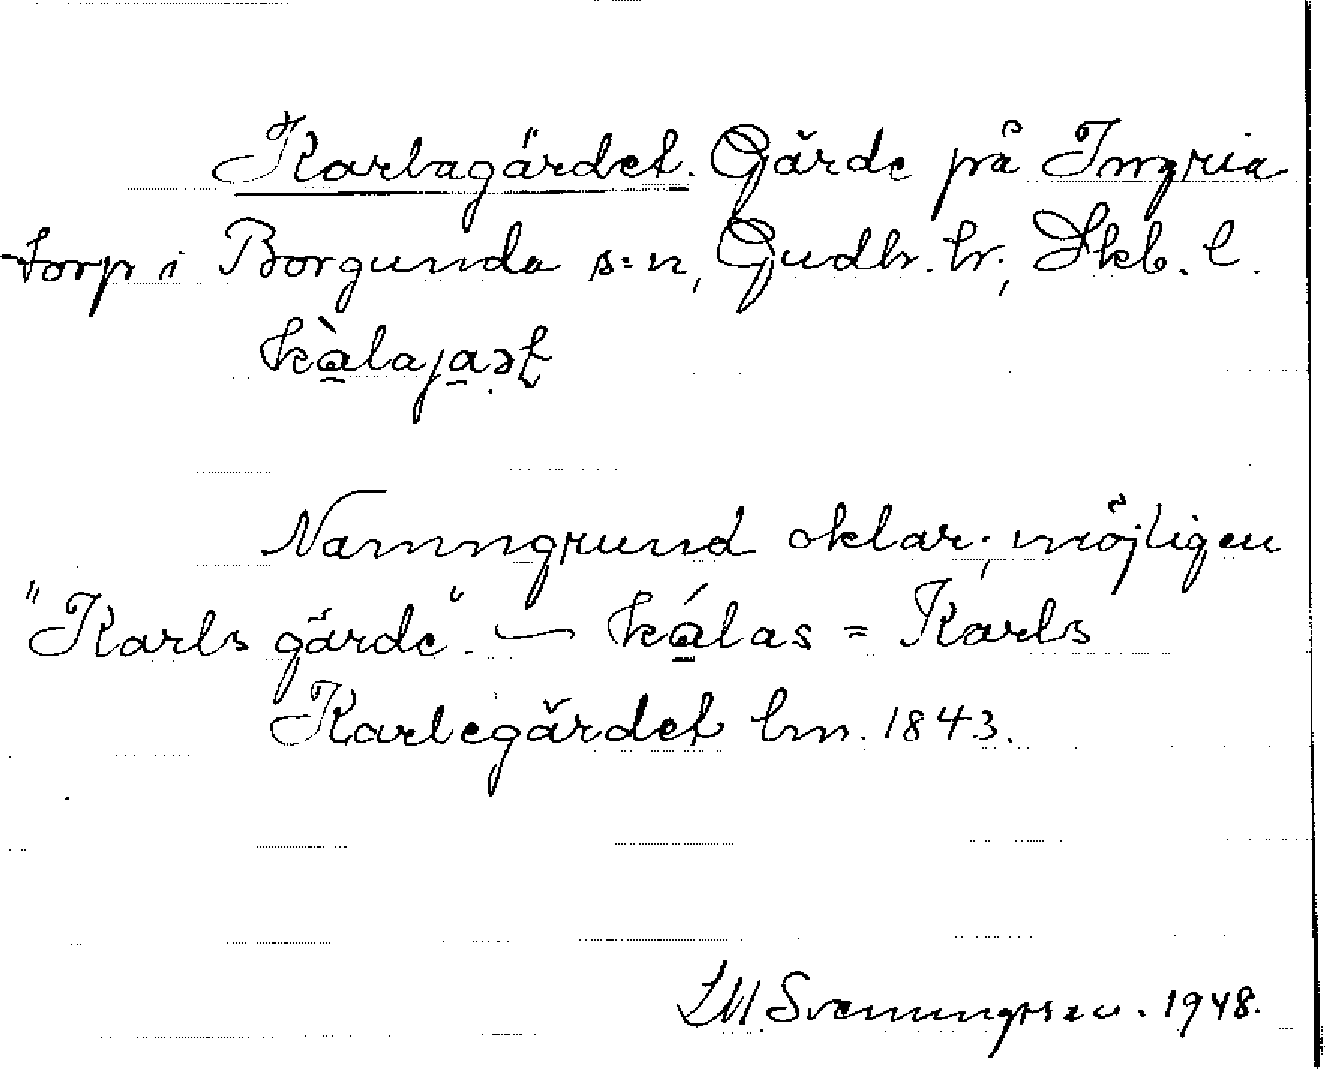 Karlagärdet. Gärde på Ingria
torp i Borgunda s:n, Gudh. hr; Skb. l.
kàlajaət
Namngrund oklar; möjligen
"Karls gärde". — kálas = Karls
Karlegärdet lm. 1843.
LM. Svenungsson. 1948.